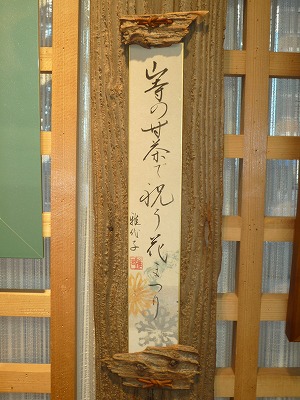 山寺の甘茶で祝う花まつり
雅代子